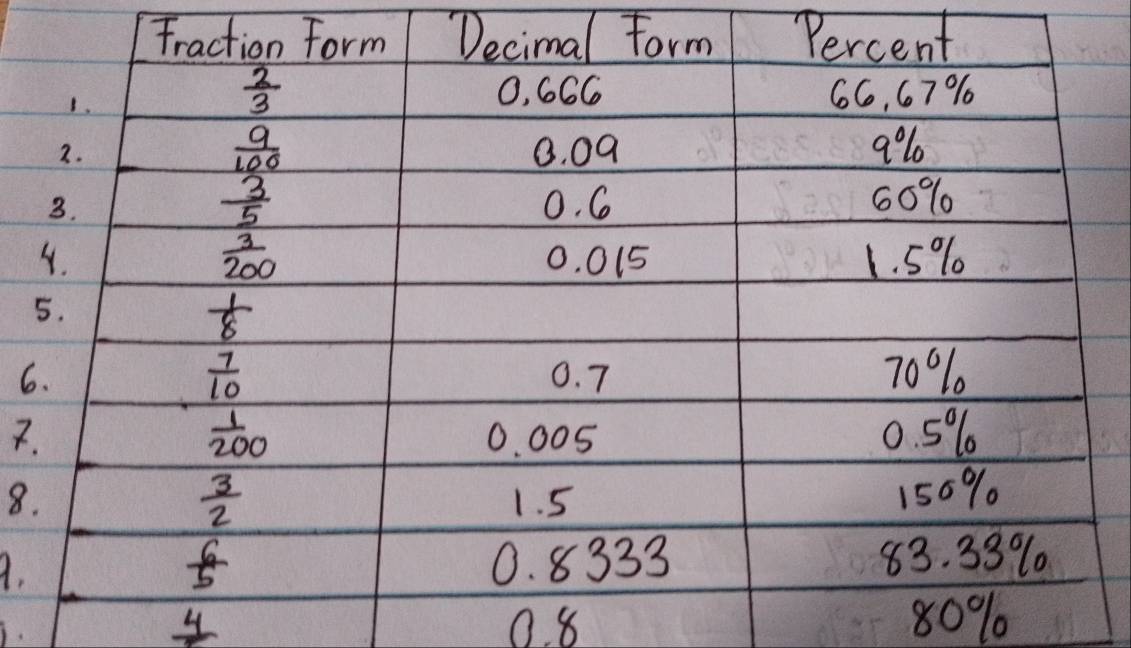 Fraction Form Decimal Form Percent
1. 2/3 0.666 66.67%
2. 9/100 0.09 9%
3. 3/5 0.6 60%
4. 3/200 0.015 1.5%
5. 1/8
6. 7/10 0.7 70%
7. 1/200 0.005 0.5%
8. 3/2 1.5 150%
9. 6/5 0.8333 83.33%
4 0.8 80%